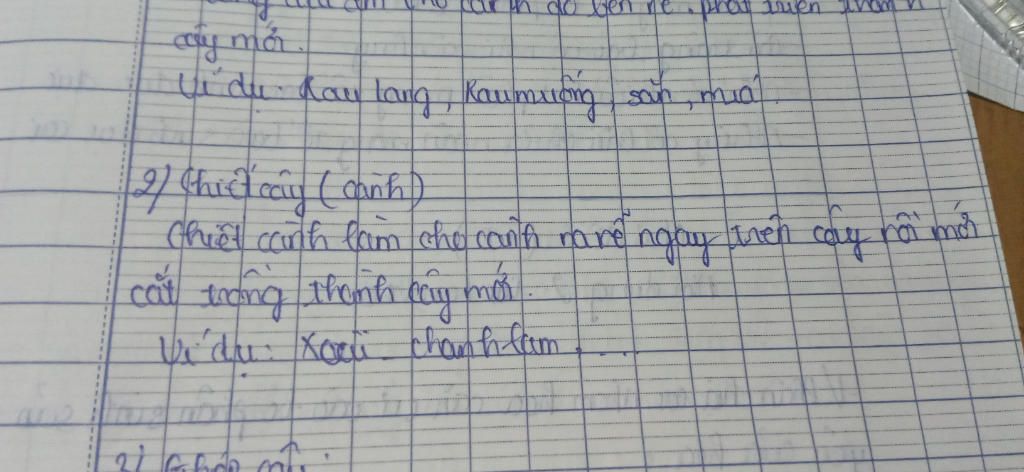 cho cành đó bén rễ, phát triển thành
cây mới.
Ví dụ: Rau lang, Rau muống, sắn, mía.
2) Chiết cây (cành)
Chiết cành làm cho cành ra rễ ngay trên cây rồi mới
cắt trồng thành cây mới.
Ví dụ: Xoài, chanh, cam, ...